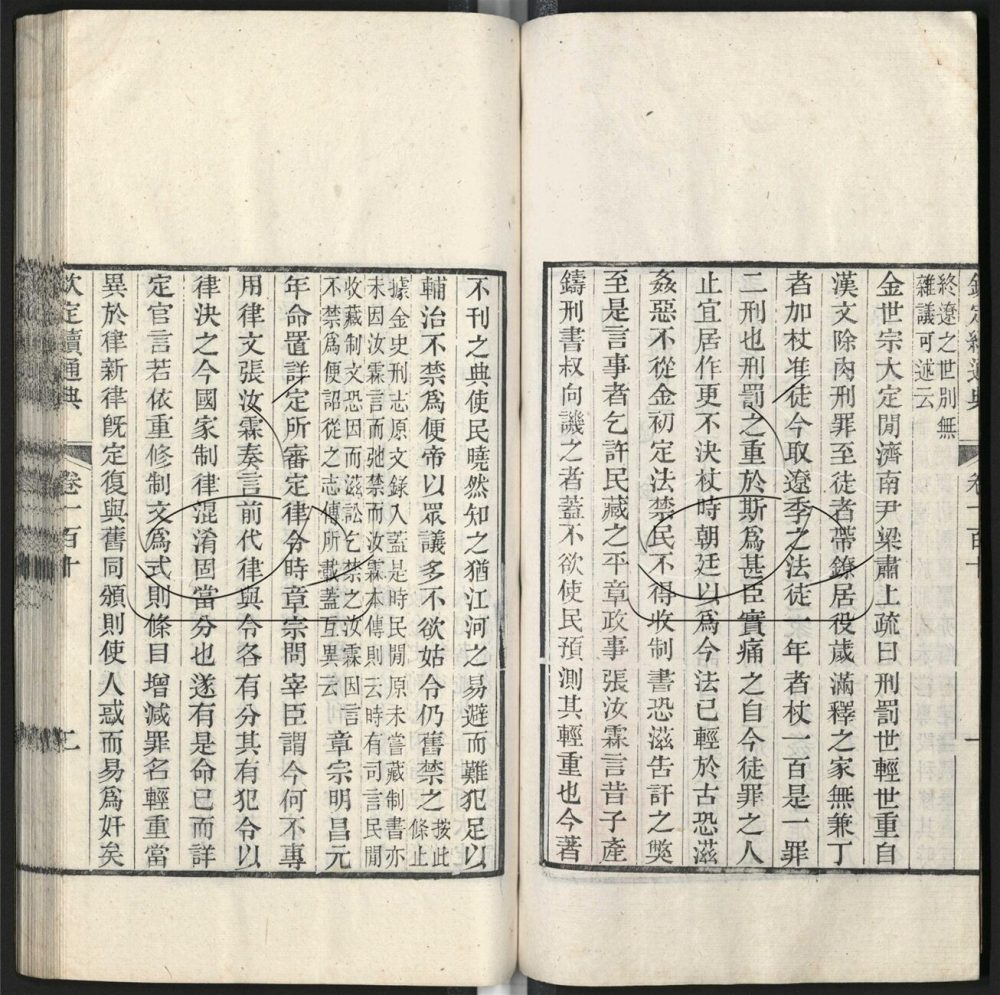 欽定續通典 卷一百十 一
終遼之世別無
雜議可述云
金世宗大定閒濟南尹梁肅上疏曰刑罰世輕世重自
漢文除肉刑罪至徒者帶鐐居役歲滿釋之家無兼丁
者加杖准徒今取遼季之法徒一年者杖一百是一罪
二刑也刑罰之重於斯爲甚臣實痛之自今徒罪之人
止宜居作更不決杖時朝廷以爲今法已輕於古恐滋
姦惡不從金初定法禁民不得收制書恐滋告訐之獘
至是言事者乞許民藏之平章政事張汝霖言昔子產
鑄刑書叔向譏之者蓋不欲使民預測其輕重也今著
不刊之典使民曉然知之猶江河之易避而難犯足以
輔治不禁爲便帝以眾議多不欲姑令仍舊禁之
按此
條止
據金史刑志原文錄入蓋是時民閒原未嘗藏制書亦
未因汝霖言而弛禁而汝霖本傳則云時有司言民閒
收藏制文恐因而滋訟乞禁之汝霖因言
不禁爲便詔從之志傳所載蓋互異云
章宗明昌元
年命置詳定所審定律令時章宗問宰臣謂今何不專
用律文張汝霖奏言前代律與令各有分其有犯令以
律決之今國家制律混淆固當分也遂有是命已而詳
定官言若依重修制文爲式則條目增減罪名輕重當
異於律新律旣定復與舊同頒則使人惑而易爲奸矣
欽定續通典 卷一百十 二